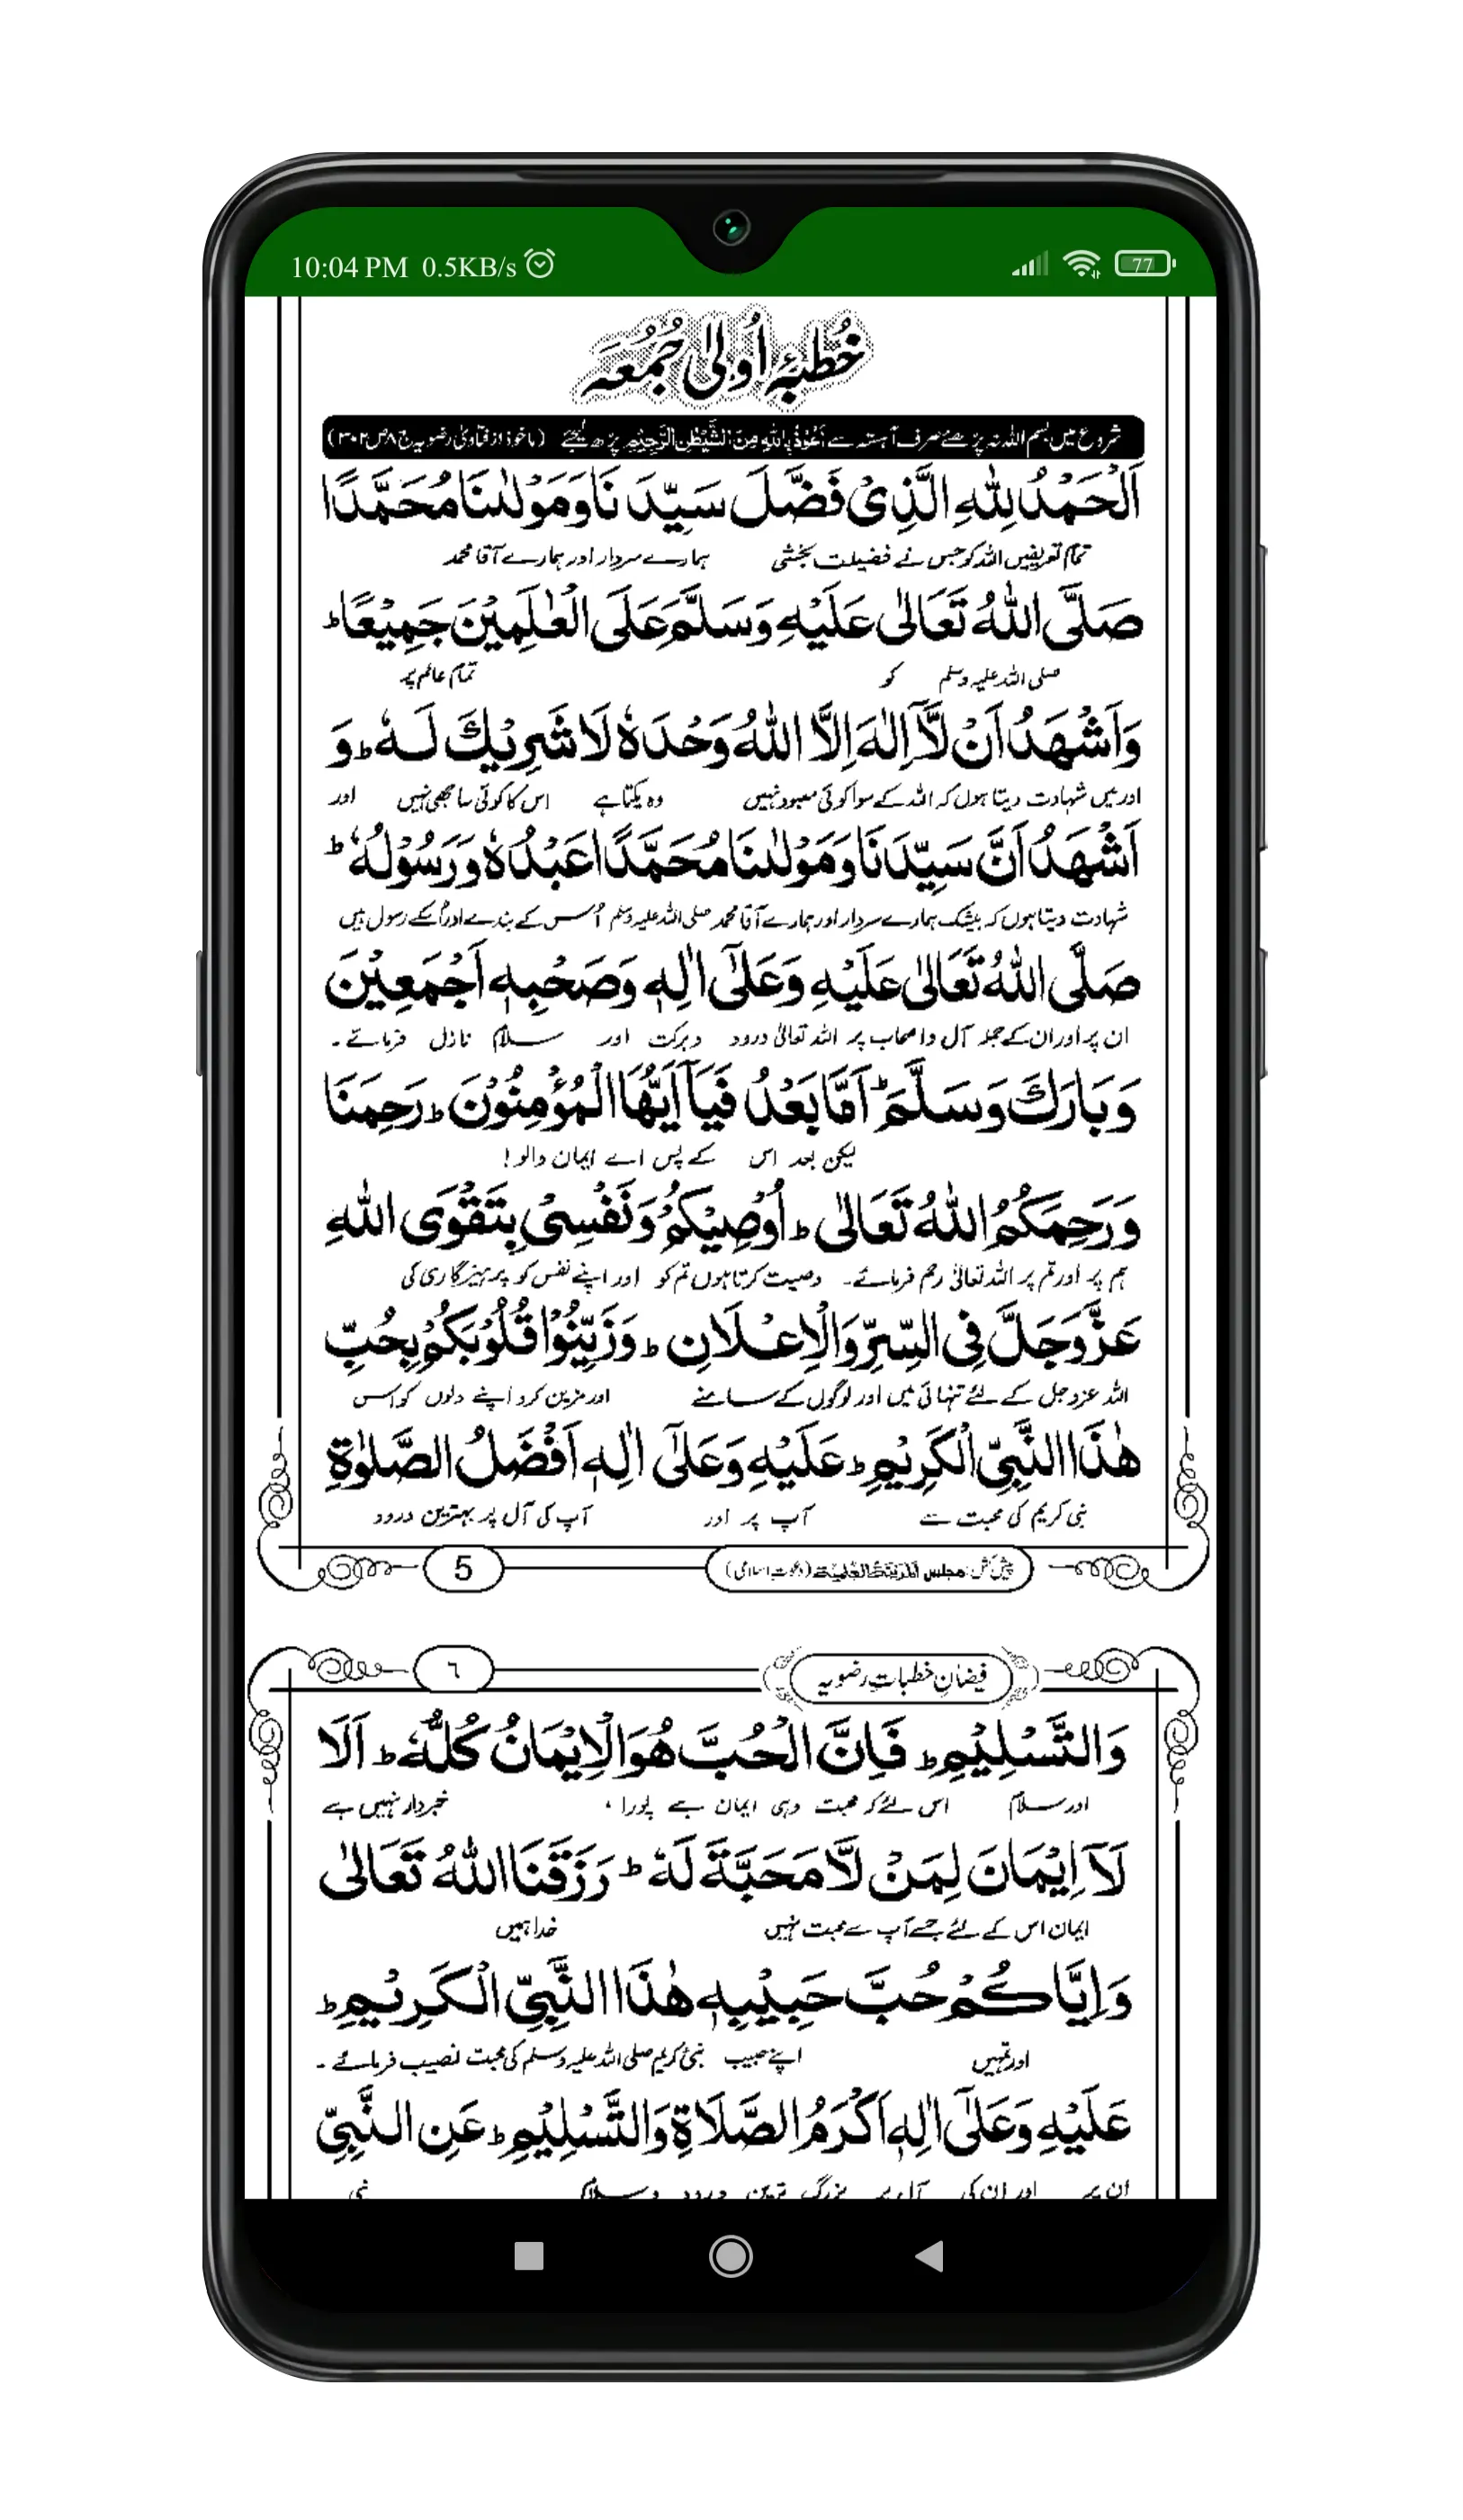 10:04 PM 0.5KB/s
77
خُطبۂ اُولیٰ جُمُعَہ
شروع میں بسم اللہ نہ پڑھئے صرف آہستہ سے اَعُوْذُ بِاللّٰہِ مِنَ الشَّیْطٰنِ الرَّجِیْمِ پڑھ لیجئے (ماخوذ از فتاویٰ رضویہ ج۸ ص۳۰۲)
اَلْحَمْدُ لِلّٰهِ الَّذِیْ فَضَّلَ سَيِّدَنَا وَمَوْلٰنَا مُحَمَّدًا
تمام تعریفیں اللہ کو جس نے فضیلت بخشی ہمارے سردار اور ہمارے آقا محمد
صَلَّى اللّٰهُ تَعَالٰى عَلَيْهِ وَسَلَّمَ عَلَى الْعٰلَمِيْنَ جَمِيْعًا ط
صلی اللہ علیہ وسلم کو تمام عالم پر
وَاَشْهَدُ اَنْ لَّآ اِلٰهَ اِلَّا اللّٰهُ وَحْدَهٗ لَا شَرِيْكَ لَهٗ ط وَ
اور میں شہادت دیتا ہوں کہ اللہ کے سوا کوئی معبود نہیں وہ یکتا ہے اس کا کوئی ساجھی نہیں اور
اَشْهَدُ اَنَّ سَيِّدَنَا وَمَوْلٰنَا مُحَمَّدًا عَبْدُهٗ وَرَسُوْلُهٗ ط
شہادت دیتا ہوں کہ بیشک ہمارے سردار اور ہمارے آقا محمد صلی اللہ علیہ وسلم اُس کے بندے اور اُسکے رسول ہیں
صَلَّى اللّٰهُ تَعَالٰى عَلَيْهِ وَعَلٰٓى اٰلِهٖ وَصَحْبِهٖٓ اَجْمَعِيْنَ
ان پر اور ان کے جملہ آل و اصحاب پر اللہ تعالیٰ درود و برکت اور سلام نازل فرمائے ۔
وَبَارَكَ وَسَلَّمَ ط اَمَّا بَعْدُ فَيَآ اَيُّهَا الْمُؤْمِنُوْنَ ط رَحِمَنَا
لیکن بعد اس کے پس اے ایمان والو!
وَرَحِمَكُمُ اللّٰهُ تَعَالٰى ط اُوْصِيْكُمْ وَنَفْسِىْ بِتَقْوَى اللّٰهِ
ہم پر اور تم پر اللہ تعالیٰ رحم فرمائے۔ وصیت کرتا ہوں تم کو اور اپنے نفس کو پرہیزگاری کی
عَزَّوَجَلَّ فِى السِّرِّ وَالْاِعْلَانِ ط وَزَيِّنُوْا قُلُوْبَكُمْ بِحُبِّ
اللہ عزوجل کے لئے تنہائی میں اور لوگوں کے سامنے اور مزین کرو اپنے دلوں کو اس
هٰذَا النَّبِىِّ الْكَرِيْمِ ط عَلَيْهِ وَعَلٰٓى اٰلِهٖ اَفْضَلُ الصَّلٰوةِ
نبی کریم کی محبت سے آپ پر اور آپ کی آل پر بہترین درود
پیش کش: مجلس المدینۃ العلمیۃ (دعوت اسلامی)
5
فیضانِ خطباتِ رضویہ
٦
وَالتَّسْلِيْمِ ط فَاِنَّ الْحُبَّ هُوَ الْاِيْمَانُ كُلُّهٗ ط اَلَا
اور سلام اس لئے کہ محبت وہی ایمان ہے پورا ، خبردار نہیں ہے
لَآ اِيْمَانَ لِمَنْ لَّا مَحَبَّةَ لَهٗ ط رَزَقَنَا اللّٰهُ تَعَالٰى
ایمان اس کے لئے جسے آپ سے محبت نہیں خدا ہمیں
وَاِيَّاكُمْ حُبَّ حَبِيْبِهٖ هٰذَا النَّبِىِّ الْكَرِيْمِ ط
اور تمہیں اپنے حبیب نبی کریم صلی اللہ علیہ وسلم کی محبت نصیب فرمائے ۔
عَلَيْهِ وَعَلٰٓى اٰلِهٖٓ اَكْرَمُ الصَّلَاةِ وَالتَّسْلِيْمِ ط عَنِ النَّبِىِّ
ان پر اور ان کی آل پر بزرگ ترین درود و سلام نبی